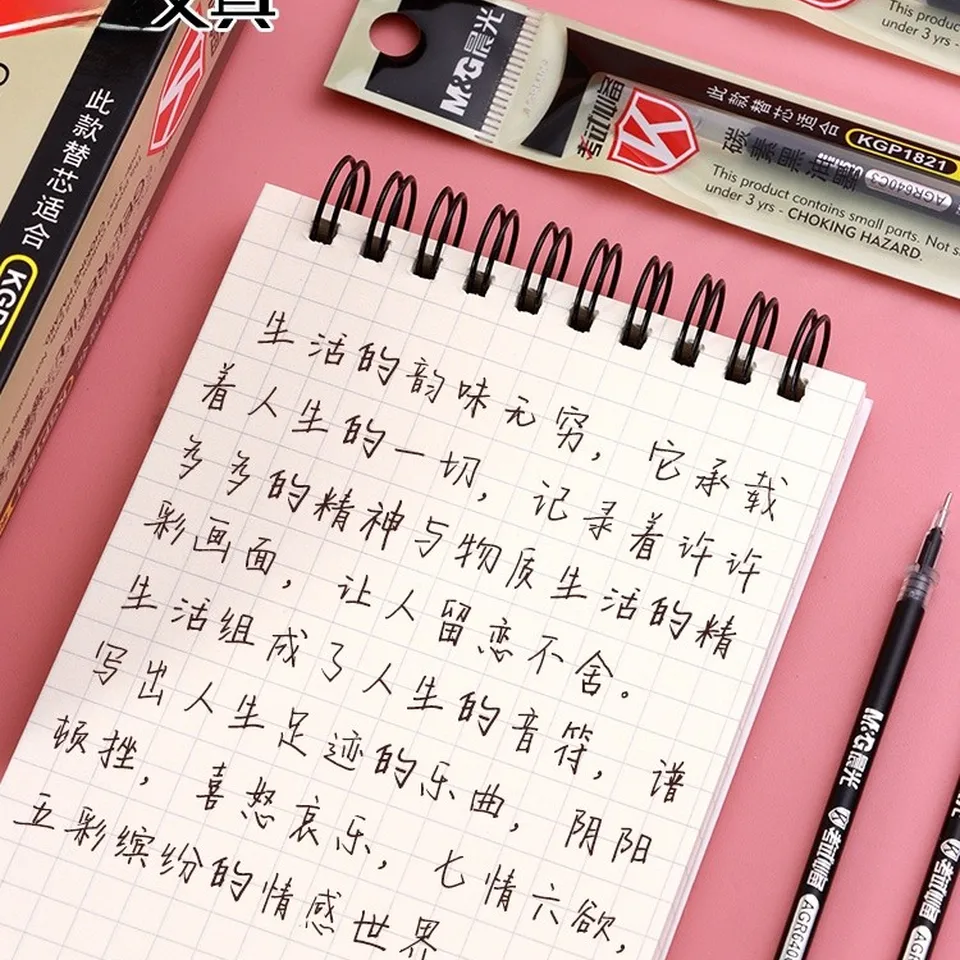 文具
此款替芯适合
KGP
M&G晨光
考试必备
此款替芯适合 KGP1821
碳素黑油墨
AGR640C3
This product contains small parts. Not s
under 3 yrs - CHOKING HAZARD.
This produc
under 3 yrs -
生活的韵味无穷，它承载
着人生的一切，记录着许许
多多的精神与物质生活的精
彩画面，让人留恋不舍。
生活组成了人生的音符，谱
写出人生足迹的乐曲，阴阳
顿挫，喜怒哀乐，七情六欲，
五彩缤纷的情感世界
M&G晨光 考试必备 AGR640
考试必备 AG